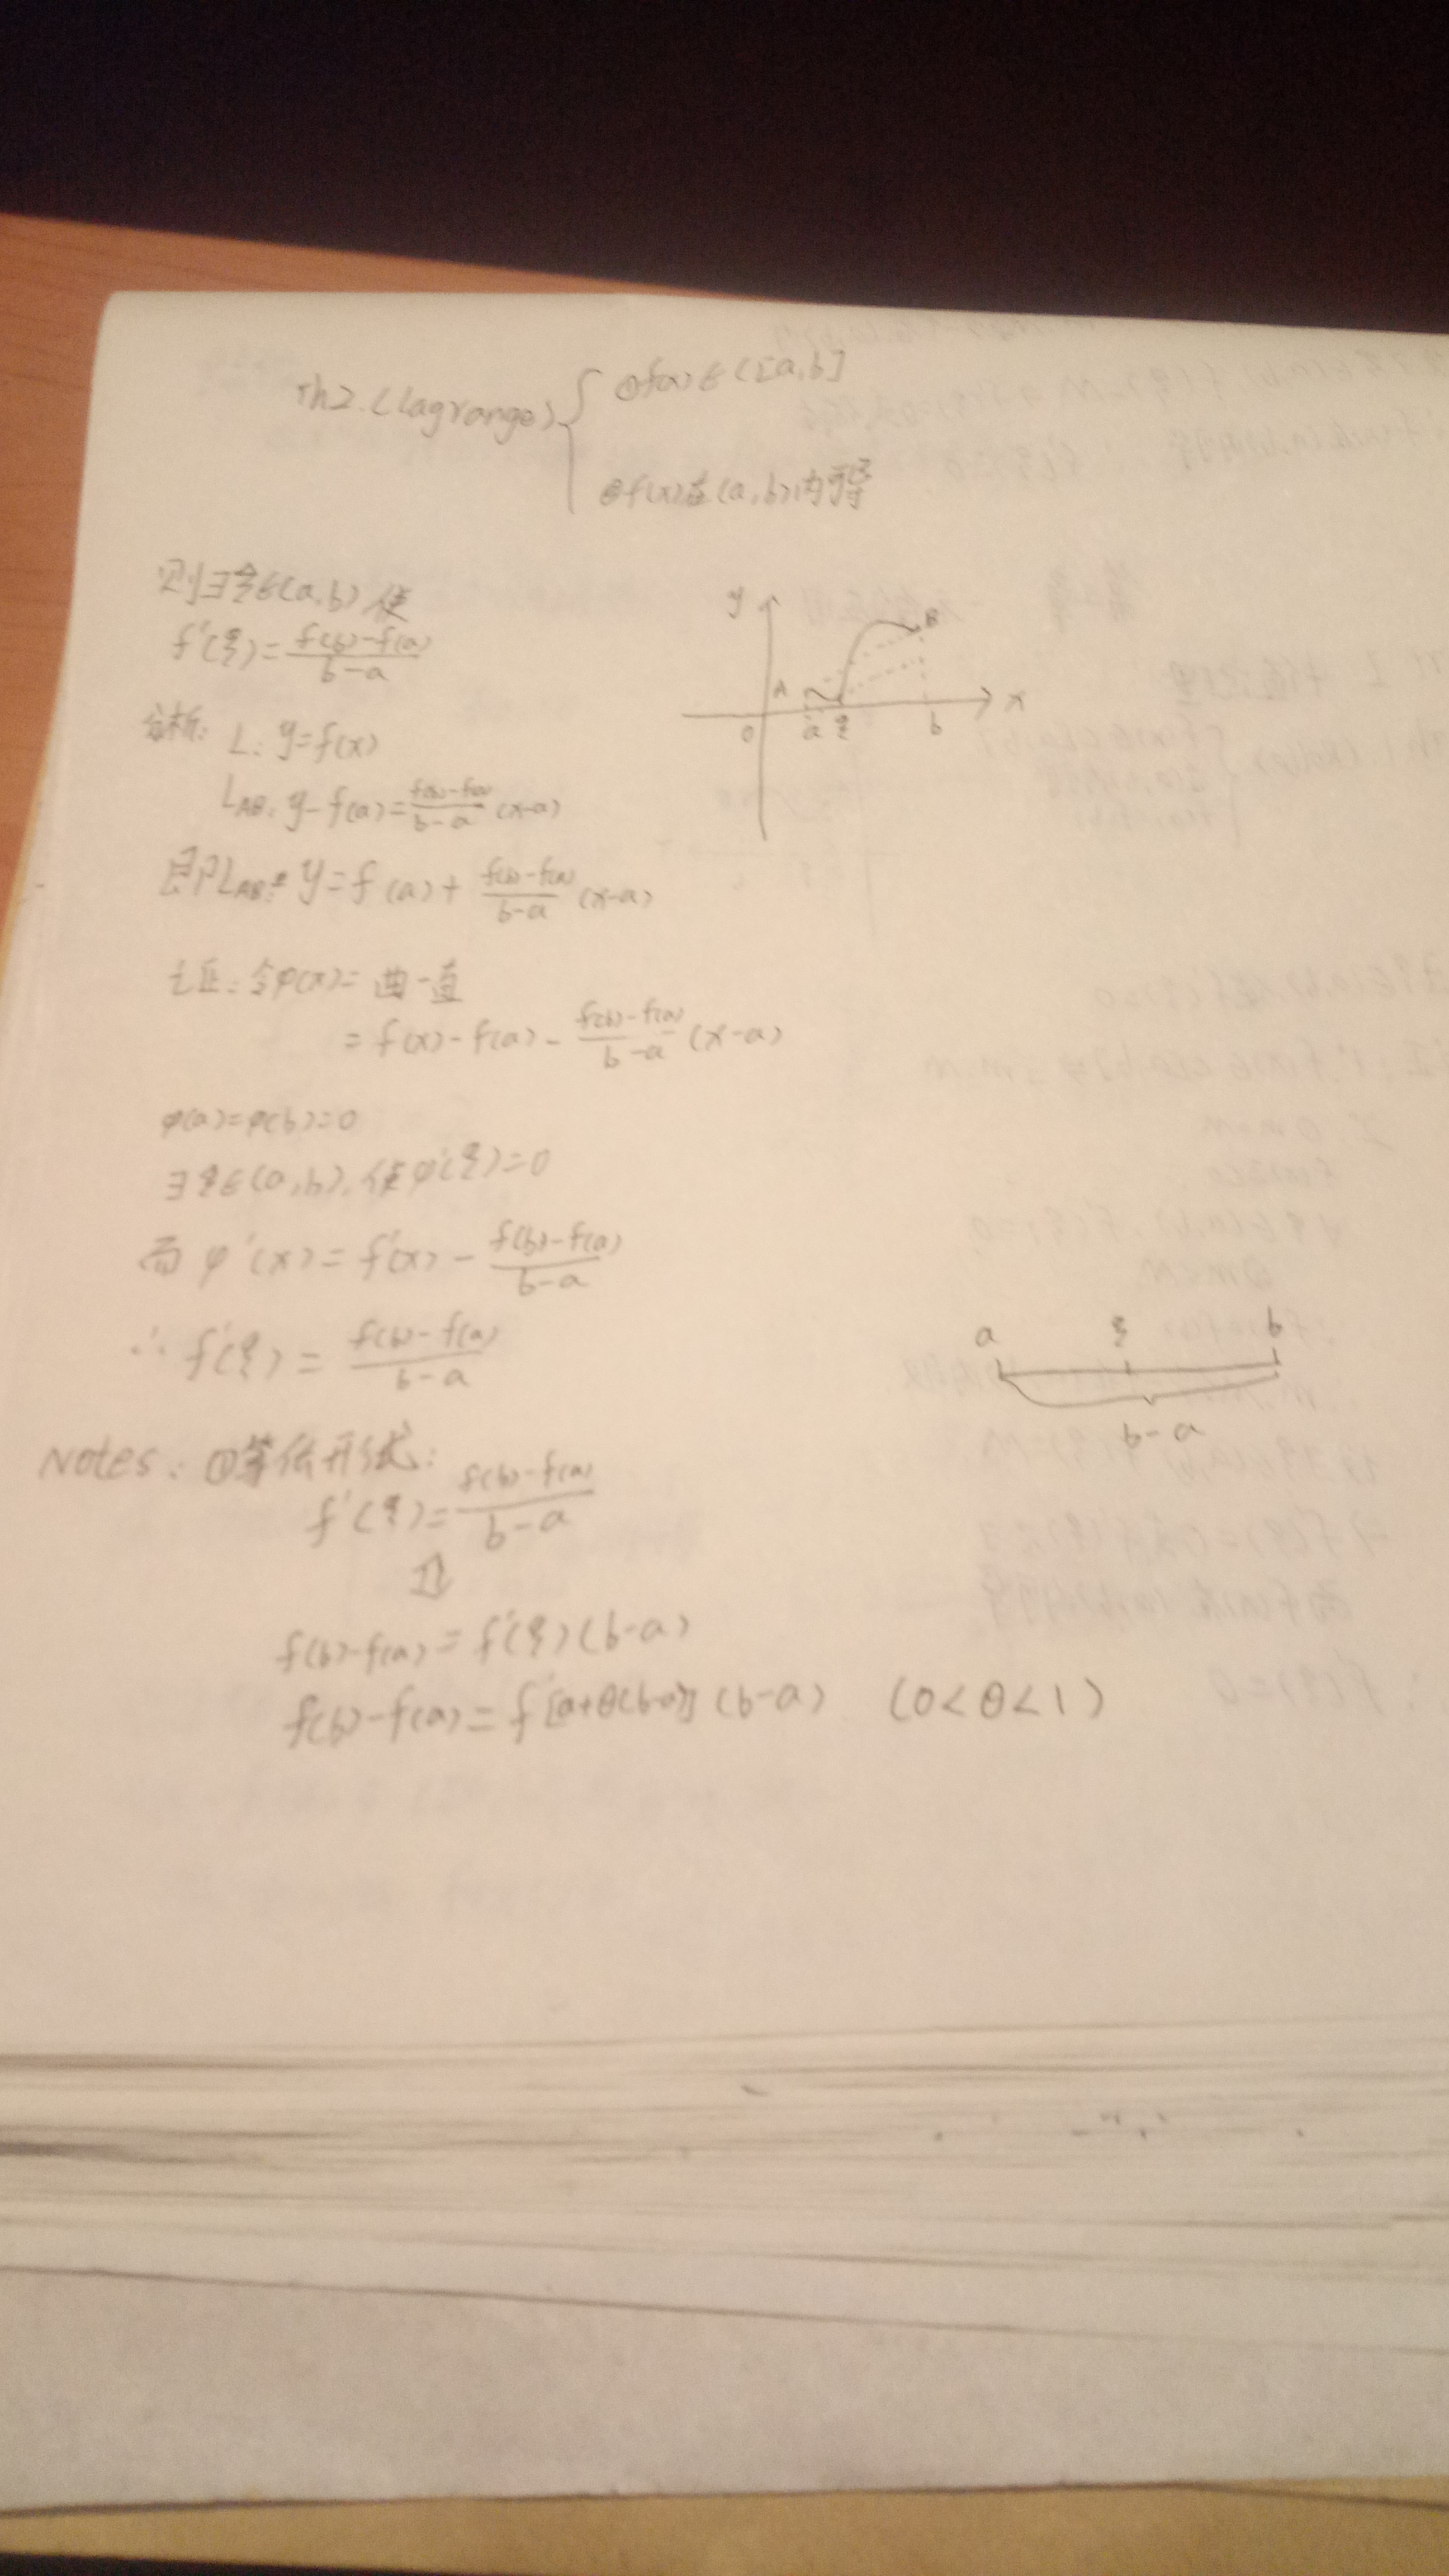 Th2.(lagrange) { ①f(x)∈C[a,b]
②f(x)在(a,b)内可导
则∃ξ∈(a,b)使
f'(ξ)=(f(b)-f(a))/(b-a)
y
A
B
O a ξ b x
分析: L: y=f(x)
L_AB: y-f(a)=(f(b)-f(a))/(b-a) (x-a)
即L_AB: y=f(a)+(f(b)-f(a))/(b-a) (x-a)
证:令φ(x)=曲-直
=f(x)-f(a)-(f(b)-f(a))/(b-a) (x-a)
φ(a)=φ(b)=0
∃ξ∈(a,b),使φ'(ξ)=0
而φ'(x)=f'(x)-(f(b)-f(a))/(b-a)
∴f'(ξ)=(f(b)-f(a))/(b-a)
a ξ b
b-a
Notes: ①等价形式:
f'(ξ)=(f(b)-f(a))/(b-a)
⇕
f(b)-f(a)=f'(ξ)(b-a)
f(b)-f(a)=f'[a+θ(b-a)](b-a) (0<θ<1)